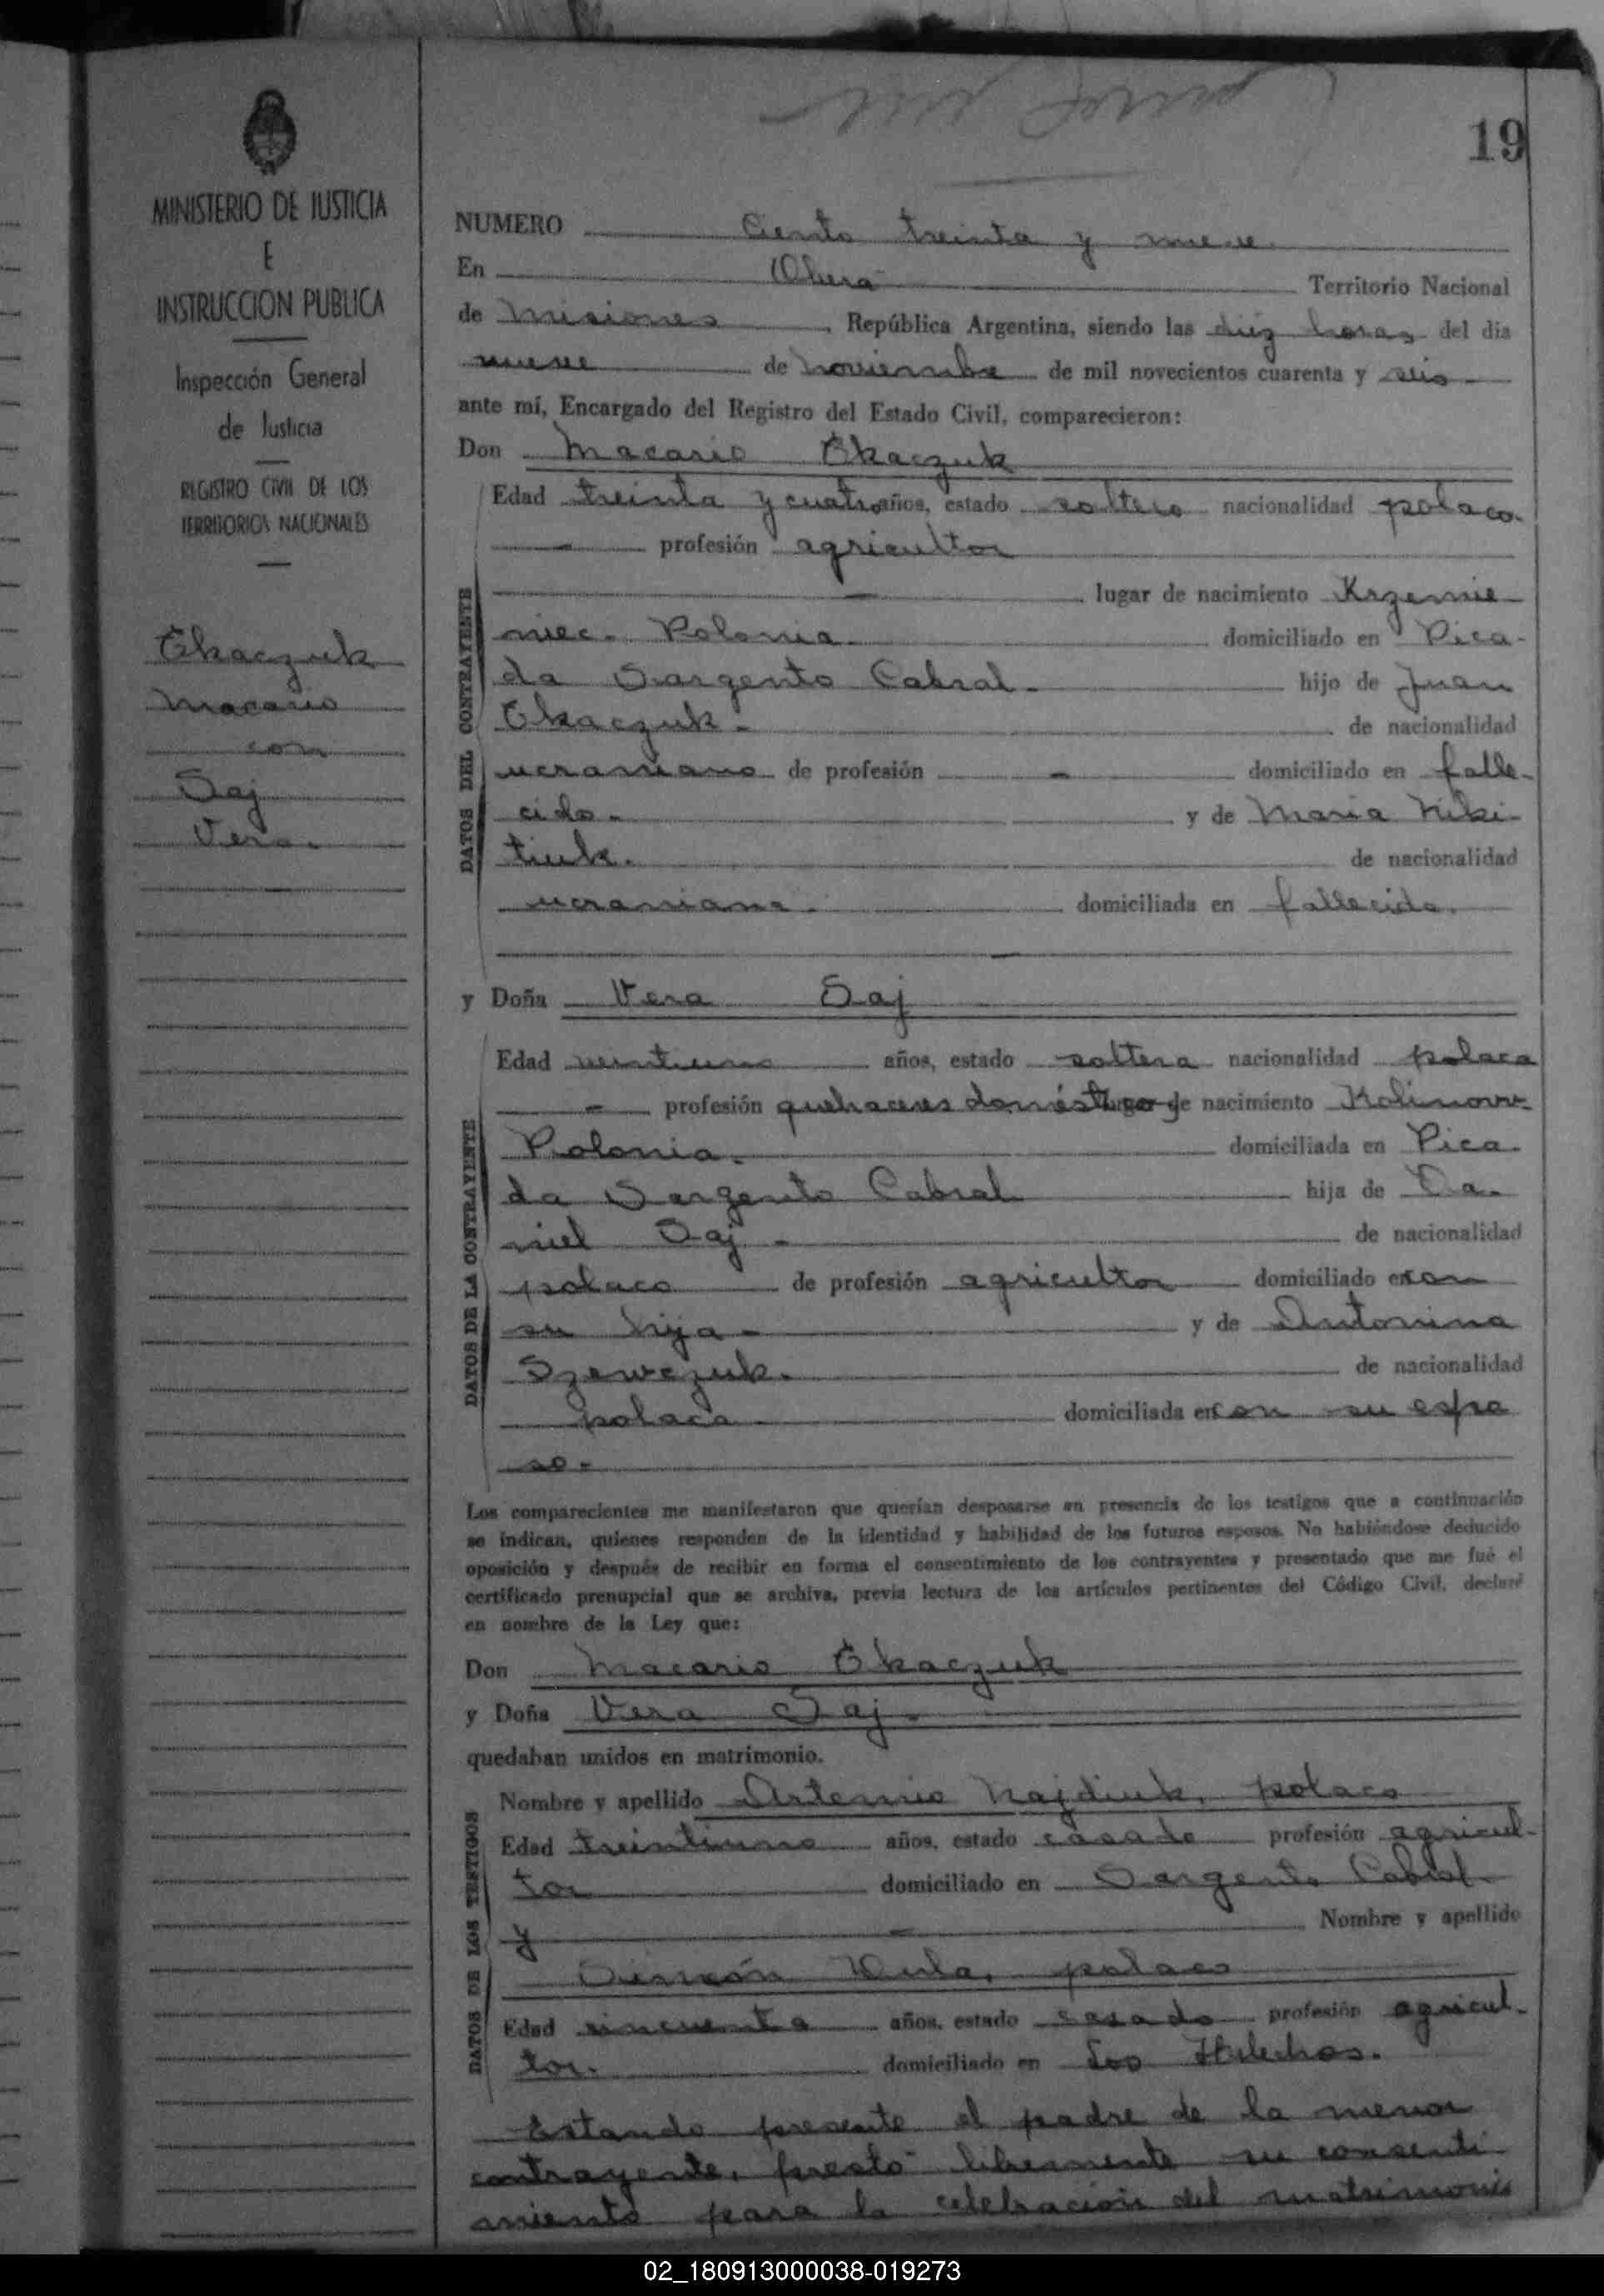 19
MINISTERIO DE JUSTICIA
E
INSTRUCCION PUBLICA
Inspección General
de Justicia
REGISTRO CIVIL DE LOS
TERRITORIOS NACIONALES
Tkaczuk
Macario
con
Saj
Vera.
NUMERO Ciento treinta y nueve.
En Oberá Territorio Nacional
de Misiones, República Argentina, siendo las diez horas del día
nueve de noviembre de mil novecientos cuarenta y seis
ante mí, Encargado del Registro del Estado Civil, comparecieron:
Don Macario Tkaczuk
DATOS DEL CONTRAYENTE
Edad treinta y cuatro años, estado soltero nacionalidad polaco.
- profesión agricultor
- lugar de nacimiento Krzemie
niec. Polonia. domiciliado en Pica-
da Sargento Cabral. hijo de Juan
Tkaczuk. de nacionalidad
ucraniano de profesión - domiciliado en falle-
cido. y de María Niki-
tiuk. de nacionalidad
ucraniana. domiciliada en fallecida.
y Doña Vera Saj
DATOS DE LA CONTRAYENTE
Edad veintiuno años, estado soltera nacionalidad polaca
- profesión quehaceres domésticos lugar de nacimiento Kolinow
Polonia. domiciliada en Pica.
da Sargento Cabral hija de Da.
niel Saj - de nacionalidad
polaco de profesión agricultor domiciliado en con
su hija - y de Antonina
Szewczuk. de nacionalidad
polaca domiciliada en con su espo
so.
Los comparecientes me manifestaron que querían desposarse en presencia de los testigos que a continuación
se indican, quienes responden de la identidad y habilidad de los futuros esposos. No habiéndose deducido
oposición y después de recibir en forma el consentimiento de los contrayentes y presentado que me fué el
certificado prenupcial que se archiva, previa lectura de los artículos pertinentes del Código Civil, declaré
en nombre de la Ley que:
Don Macario Tkaczuk
y Doña Vera Saj.
quedaban unidos en matrimonio.
DATOS DE LOS TESTIGOS
Nombre y apellido Artemio Najdiuk, polaco
Edad treintiuno años, estado casado profesión agricul-
tor domiciliado en Sargento Cabral
y - Nombre y apellido
Simeón polaco
Edad cincuenta años, estado casado profesión agricul-
tor. domiciliado en Los Helechos.
Estando presente el padre de la menor
contrayente, prestó libremente su consenti
miento para la celebración del matrimonio
02_180913000038-019273